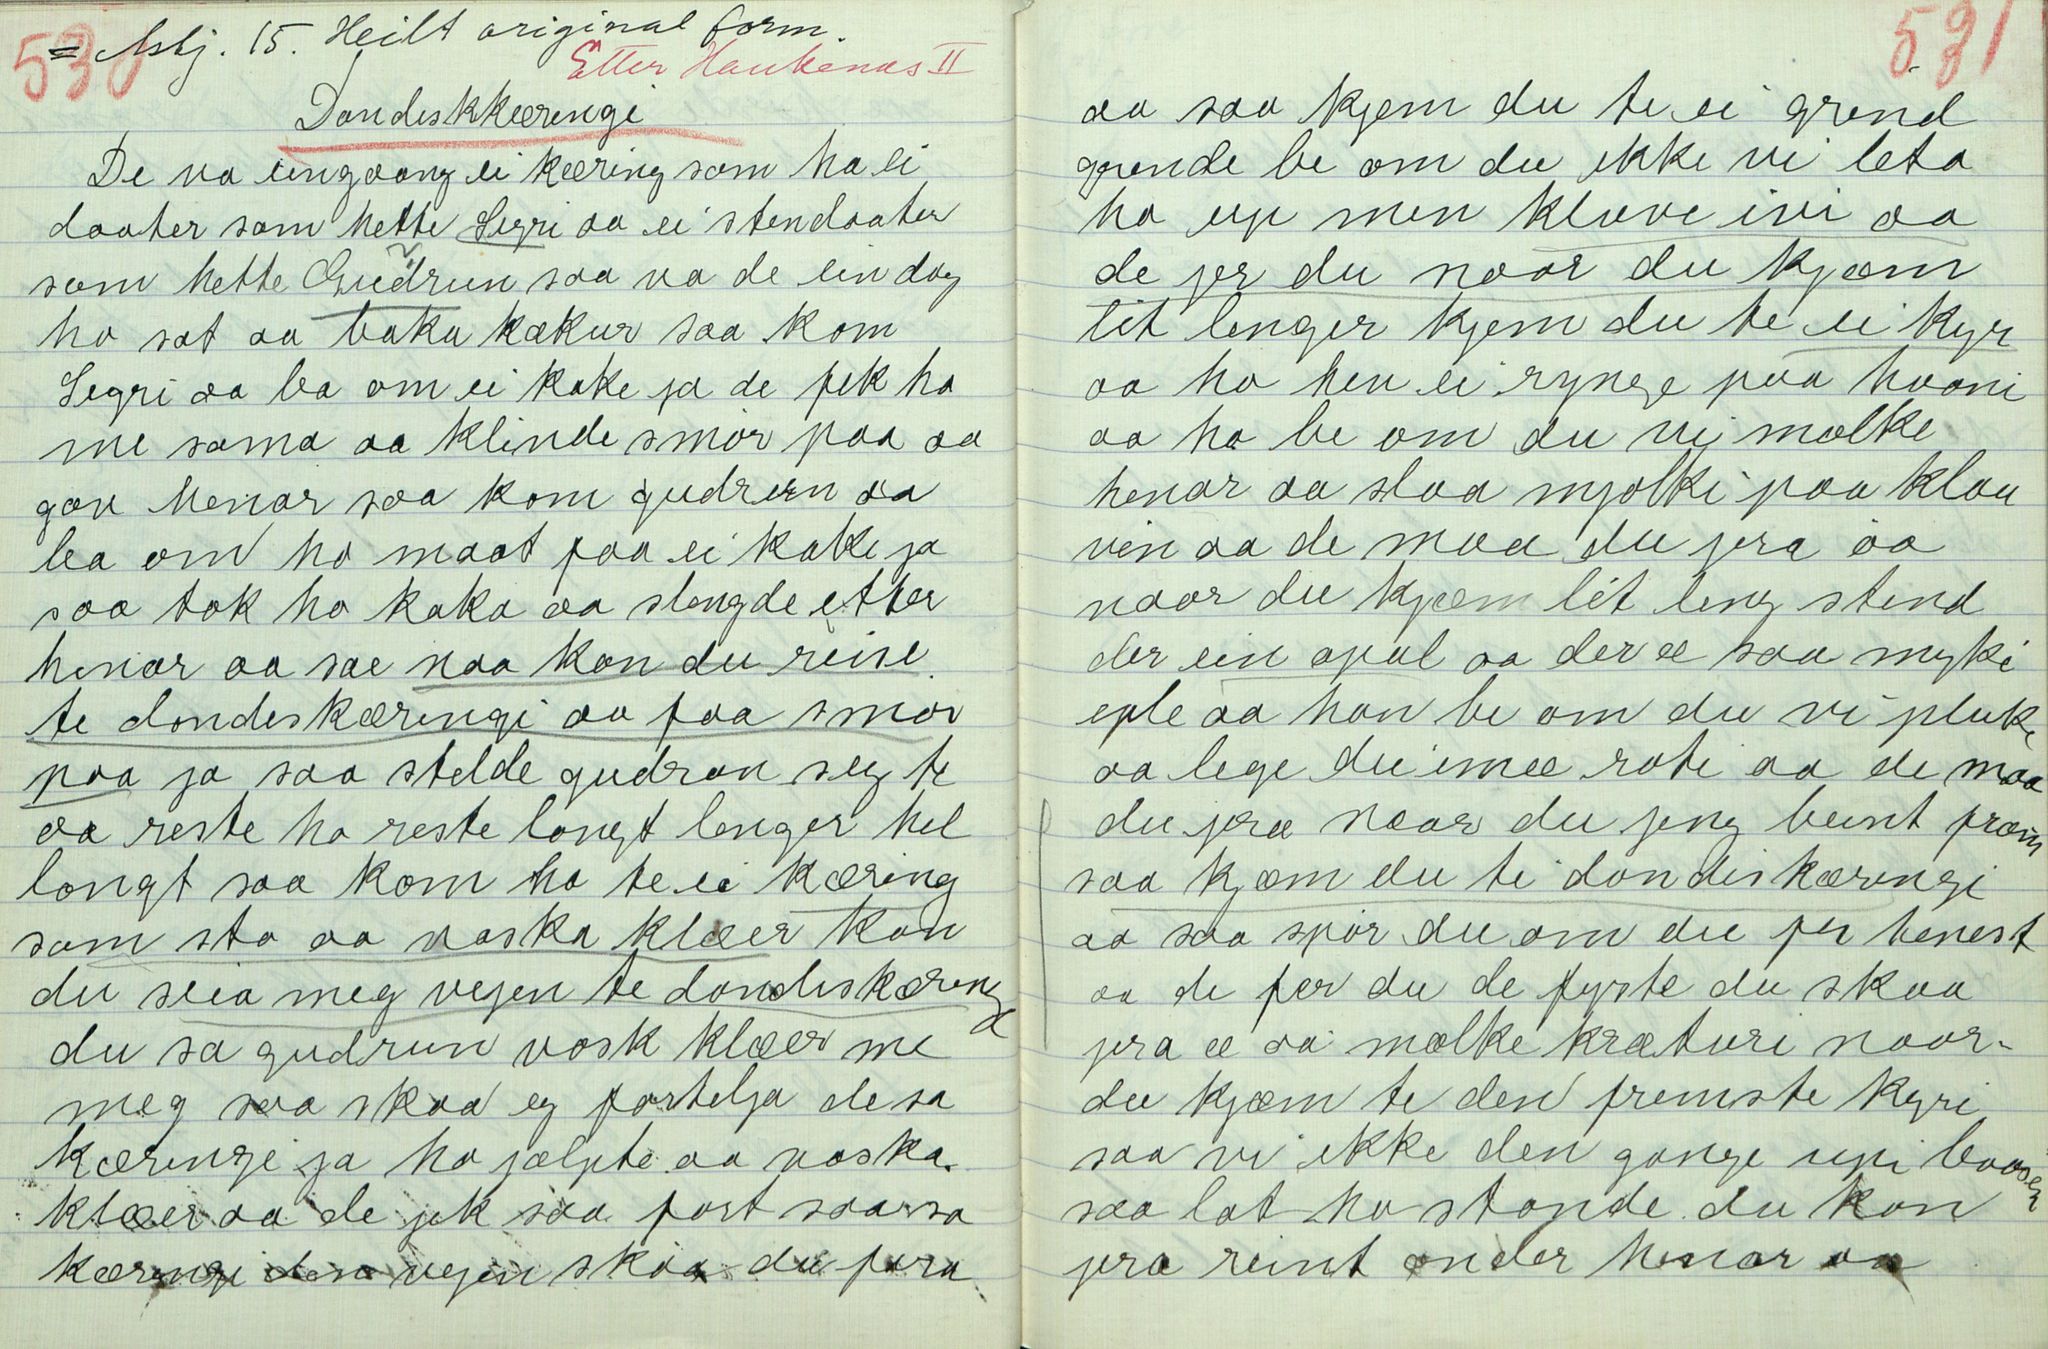 530
= Asbj. 15. Heilt original form.
Etter Haukenæs II
Dondeskkæringi
De va eingaang ei kæring som ha ei
daater som hette Segri aa ei stendaater
som hette Gudrun saa va de ein dag
ho sat aa baka kækur saa kom
Segri aa ba om ei kake ja de fek ho
me soma aa klinde smör paa aa
gav henar saa kom gudrun aa
ba om ho maat faa ei kake ja
saa tok ho kaka aa slengde etter
henar aa sae naa kan du reise
te dondeskæringi aa faa smör
paa ja saa stelde gudron seg te
aa reste ho reste langt lenger hel
langt saa kom ho te ei kæring
som sto aa vaska klæer kan
du seia meg vejen te dondeskæringe
du sa gudrun vosk klæer me
meg saa skaa eg fortelja de sa
kæringi ja ho jælpte aa vaska
klæer aa de jek saa fort saa sa
kæringi vejen skaa du fara
531
aa saa kjem du te ei grend
grende be om du ikke vi leta
ho up men kluve ivi aa
de jer du naar du kjæm
lit lenger kjem du te ei kyr
aa ho hev ei rynge paa hooni
aa ho be om du vi mælke
henar aa slaa mjølki paa klau
ven aa de maa du jera aa
naar du kjæm lit leng stend
der ein apal aa der æ saa myki
eple aa han be om du vi pluke
aa lege du imæ roti aa de maa
du jera naar du jeng beint fræm
saa kjæm du te dondeskæringi
aa saa spör du om du fer tenest
aa de fær du de fyrste du skaa
jera æ aa mælke kræturi naar
du kjæm te den fremste kyri
saa vi ikke den gange upi baasen
saa lat ho stande du kan
jera reint onder henar aa